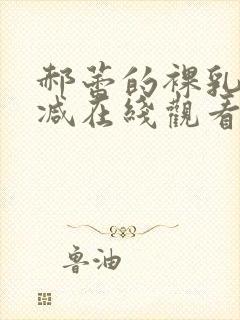 郝蕾的裸乳
减在綫觀看
鲁油